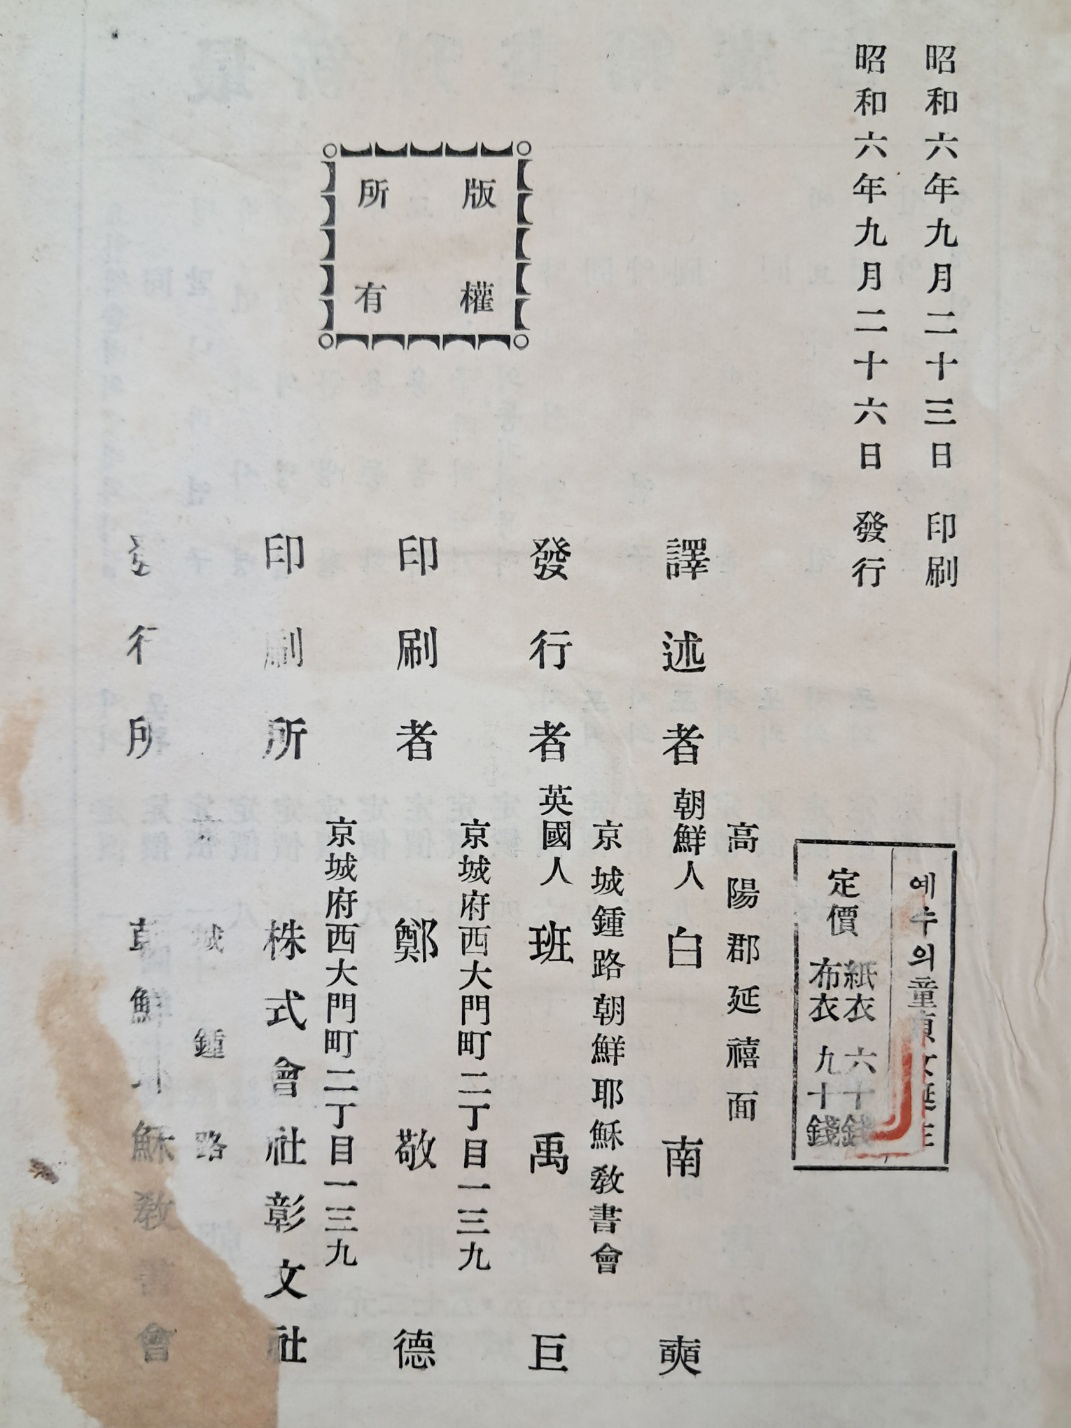 昭和六年九月二十三日 印刷
昭和六年九月二十六日 發行
版權
所有
예수의童貞女誕生
定價
紙衣 六十錢
布衣 九十錢
高陽郡延禧面
譯述者 朝鮮人 白南奭
京城鍾路朝鮮耶穌敎書會
發行者 英國人 班禹巨
京城府西大門町二丁目一三九
印刷者 鄭敬德
京城府西大門町二丁目一三九
印刷所 株式會社彰文社
城鍾路
發行所 朝鮮耶穌敎書會